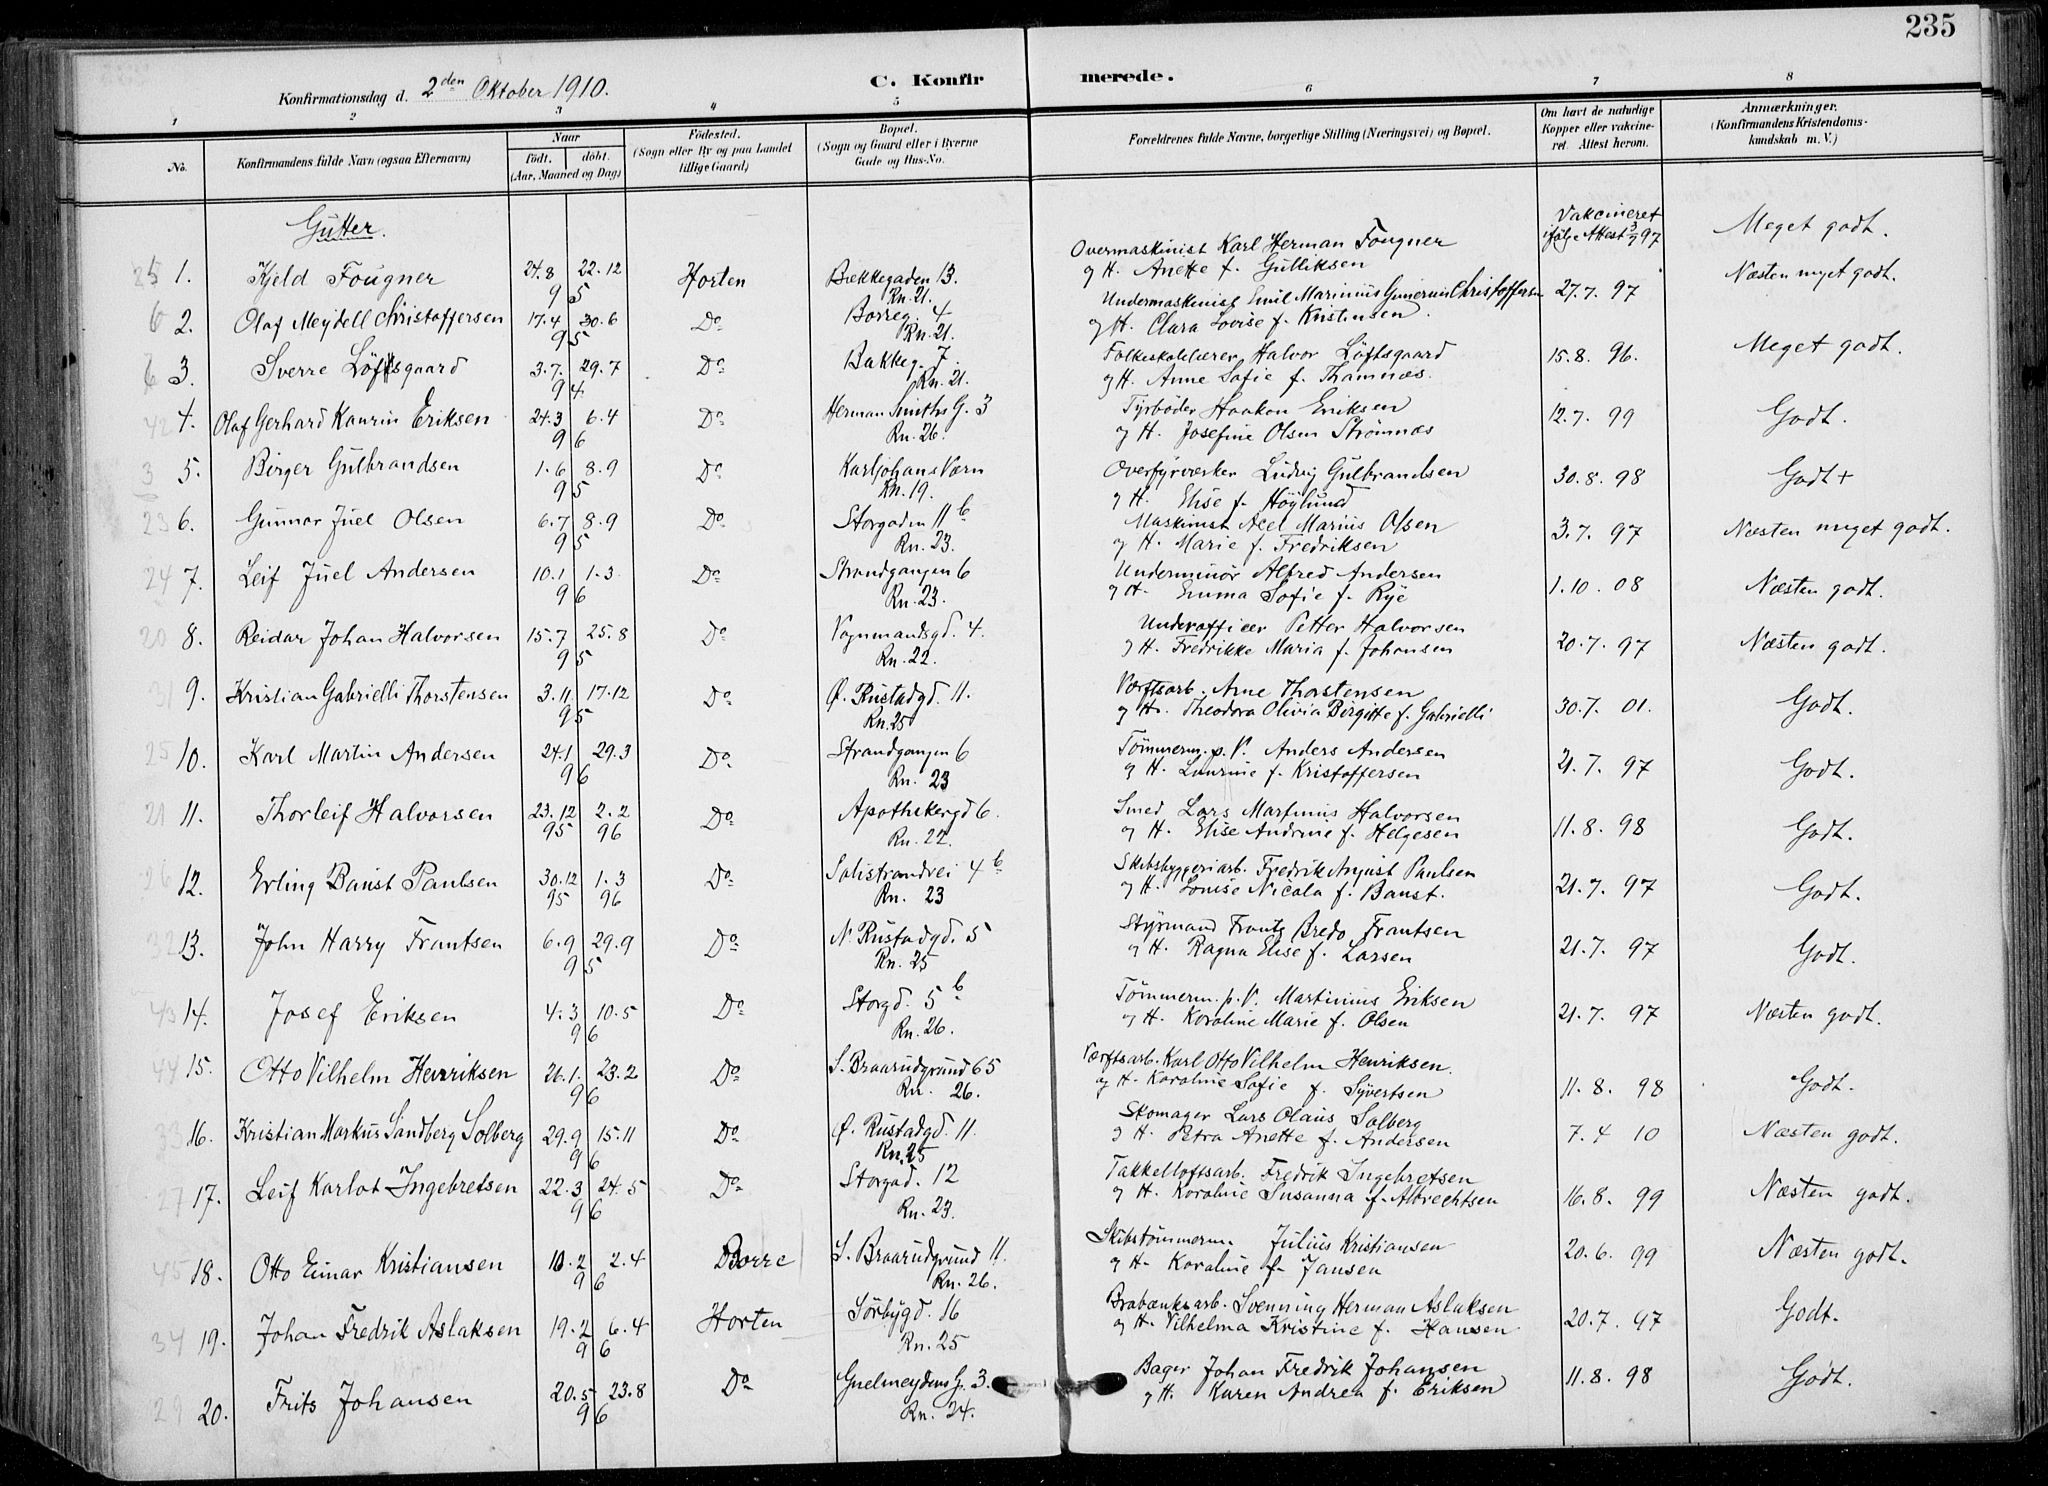 235
Konfirmationsdag d. 2den Oktober 1910.
C. Konfirmerede.
1 2 3 4 5 6 7 8
No.
Konfirmandens fulde Navn (ogsaa Efternavn)
Naar
født. døbt.
(Aar, Maaned og Dag)
Fødested.
(Sogn eller By og paa Landet
tillige Gaard)
Bopæl.
(Sogn og Gaard eller i Byerne
Gade og Hus-No.
Forældrenes fulde Navne, borgerlige Stilling (Næringsvei) og Bopæl.
Om havt de naturlige
Kopper eller vakcine-
ret. Attest herom.
Anmærkninger.
(Konfirmandens Kristendoms-
kundskab m. V.)
Gutter.
1. Kjeld Fougner 24.8 22.12 95 Horten Bækkegaden 13. Rn. 21. Overmaskinist Karl Herman Fougner og H. Anette f. Gulliksen Vakcineret ifølge Attest 3/7 97 Meget godt.
2. Olaf Meydell Christoffersen 17.4 30.6 95 Do Borreg. 4 Rn. 21. Undermaskinist Emil Marinius Gunerius Christoffersen og H. Clara Lovise f. Kristensen. 27.7. 97 Næsten myet godt.
3. Sverre Löftsgaard 3.7. 29.7 94 Do Bakkeg. 7. Rn. 21. Folkeskolelærer Halvor Löftsgaard og H. Anne Sofie f. Thamnæs. 15.8. 96. Meget godt.
4. Olaf Gerhard Kaurin Eriksen 24.3 6.4 96 Do Herman Smiths G. 3 Rn. 26. Fyrbøder Haakon Eriksen og H. Josefine Olsen Strømnæs 12.7. 99 Godt.
5. Birger Gulbrandsen 1.6 8.9 95 Do Karljohans Værn Rn. 19. Overfyrværker Ludvig Gulbrandsen og H. Elise f. Höylund 30.8. 98 Godt +
6. Gunnar Juel Olsen 6.7 8.9 95 Do Storgaden 11 b Rn. 23. Maskinist Axel Marius Olsen og H. Marie f. Fredriksen 3.7. 97 Næsten meget godt.
7. Leif Juel Andersen 10.1 1.3 96 Do Strandgangen 6 Rn. 23. Underminör Alfred Andersen og H. Emma Sofie f. Rye 1.10. 08 Næsten godt.
8. Reidar Johan Halvorsen 15.7 25.8 95 Do Vognmandsgd. 4. Rn. 22. Underofficer Petter Halvorsen og H. Fredrikke Maria f. Johansen 20.7. 97 Næsten godt.
9. Kristian Gabrielli Thorstensen 3.11 17.12 95 Do Ø. Rustadgd. 11. Rn. 25 Værftsarb. Arne Thorstensen og H. Theodora Olivia Birgitte f. Gabrielli 30.7. 01. Godt.
10. Karl Martin Andersen 24.1 29.3 96 Do Strandgangen 6 Rn. 23 Tömmerm. p. V. Anders Andersen og H. Laurine f. Kristoffersen 21.7. 97 Godt.
11. Thorleif Halvorsen 23.12 95 2.2 96 Do Apothekergd 6. Rn. 22. Smed Lars Martinius Halvorsen og H. Elise Andrine f. Helgesen 11.8. 98 Godt.
12. Erling Baust Paulsen 30.12 95 1.3 96 Do Solistrandvei 4 b Rn. 23 Skibsbyggeriarb. Fredrik August Paulsen og H. Louise Nicola f. Baust. 21.7. 97 Godt.
13. John Harry Frantsen 6.9 29.9 95 Do N. Rustadgd. 5 Rn. 25 Styrmand Frantz Bredo Frantsen og H. Ragna Elise f. Larsen 21.7. 97 Godt.
14. Josef Eriksen 4.3 10.5 96 Do Storgd. 5 b Rn. 26. Tömmerm. p. V. Martinius Eriksen og H. Koraline Marie f. Olsen 21.7. 97 Næsten godt.
15. Otto Vilhelm Henriksen 26.1. 23.2 96 Do S. Braarudgrund 65 Rn. 26. Værftsarb. Karl Otto Vilhelm Henriksen. og H. Koraline Sofie f. Syvertsen 11.8. 98 Godt.
16. Kristian Markus Sandberg Solberg 29.9 15.11 96 Do Ø. Rustadgd. 11. Rn. 25 Skomager Lars Olaus Solberg og H. Petra Anette f. Andersen 7.4 10 Næsten godt.
17. Leif Karlot Ingebretsen 22.3 24.5 96 Do Storgad. 12 Rn. 23. Takkelloftsarb. Fredrik Ingebretsen og H. Koraline Susanna f. Albrechtsen 16.8. 99 Næsten godt.
18. Otto Einar Kristiansen 10.2 2.4 96 Borre S. Braarudgrund 11. Rn. 26. Skibstømmerm Julius Kristiansen og H. Koraline f. Jansen 20.6. 99 Næsten godt.
19. Johan Fredrik Aslaksen 19.2 6.4 96 Horten Sörbygd. 16 Rn. 25 Brabænksarb. Svenning Herman Aslaksen og H. Vilhelma Kristine f. Hansen 20.7. 97 Godt.
20. Frits Johansen 20.5 23.8 96 Do G. 3. Rn. 24. Bager Johan Fredrik Johansen og H. Karen Andrea f. Eriksen 11.8. 98 Godt.